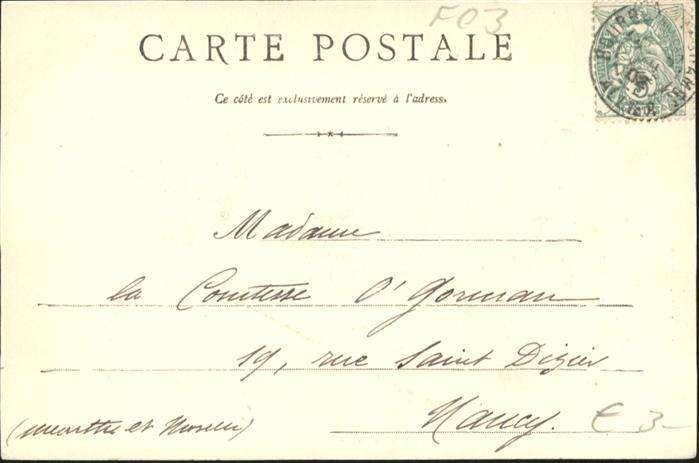 FC3
CARTE POSTALE
Ce côté est exclusivement réservé à l'adresse.
Madame
la Comtesse O'Gorman
19, rue Saint Dizier
Nancy.
(Meurthe et Moselle)
€ 3-